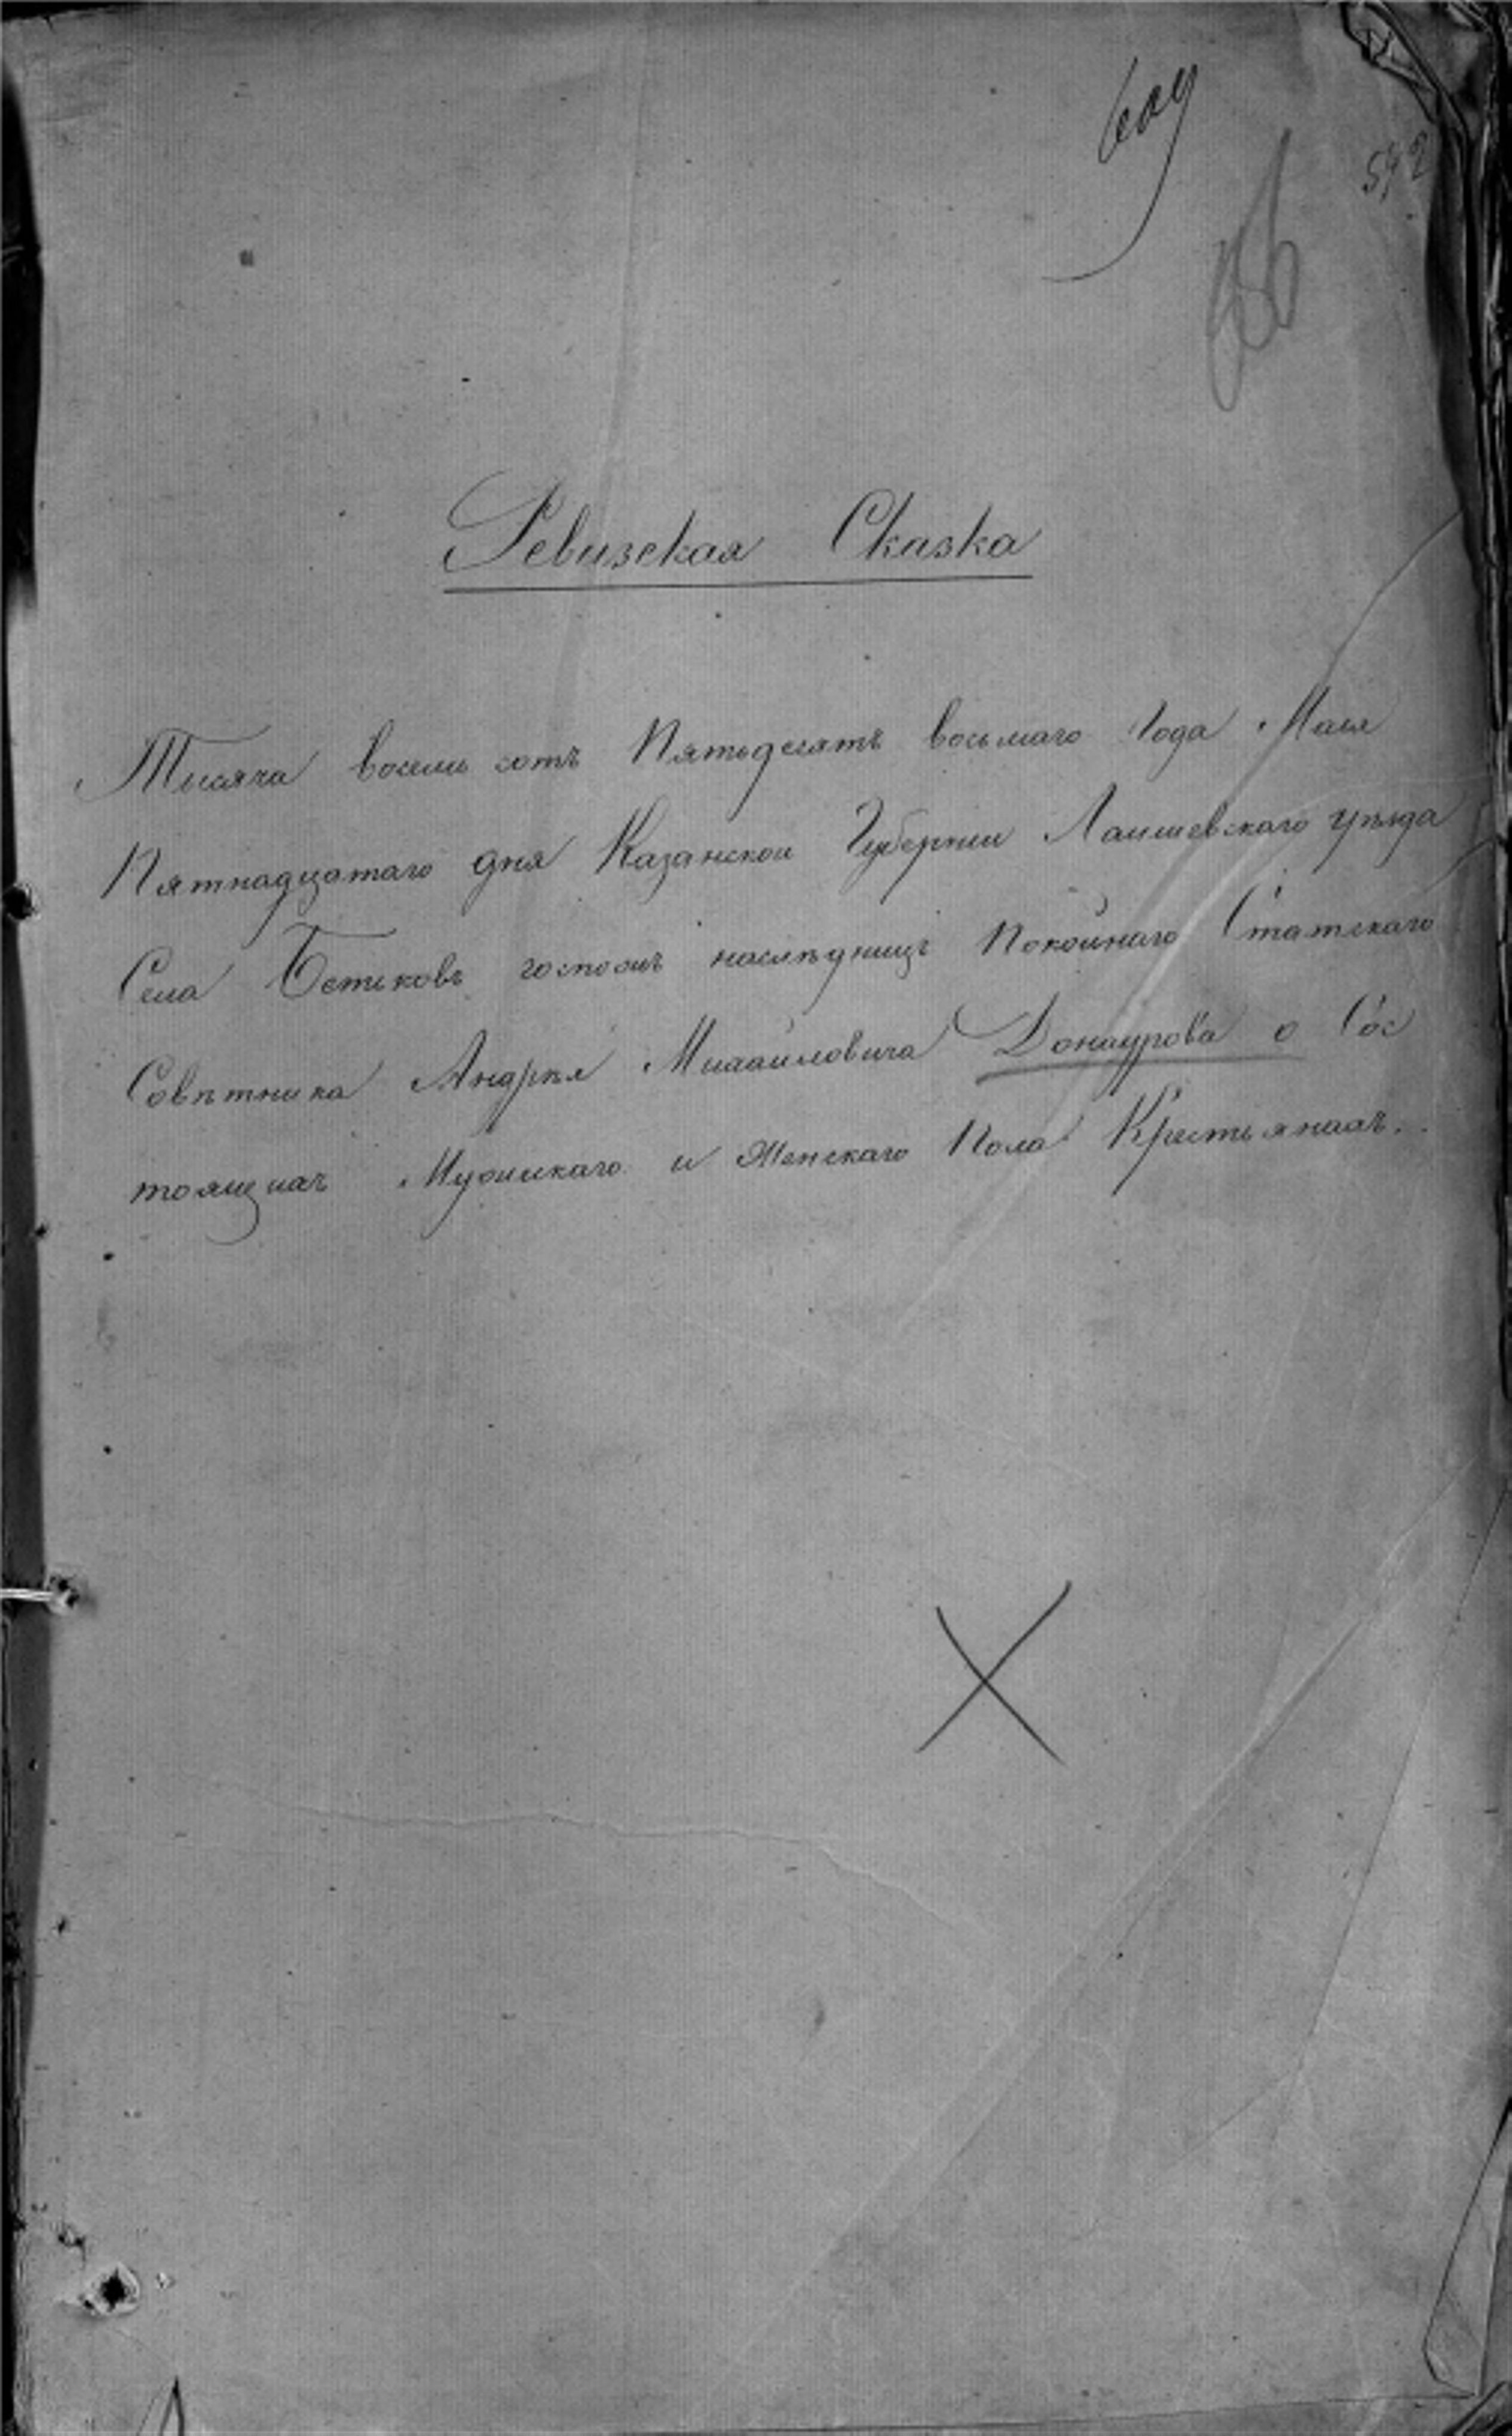 592
Ревизская Сказка
Тысяча восемь сотъ Пятьдесятъ восьмаго Года Маія
Пятнадцатаго дня Казанской Губерніи Лаишевскаго уѣзда
Села Бетьковъ госпожъ наслѣдницъ Покойнаго Статскаго
Совѣтника Андрея Михайловича Донаурова о Сос
тоящихъ Мужскаго и Женскаго Пола Крестьянахъ.